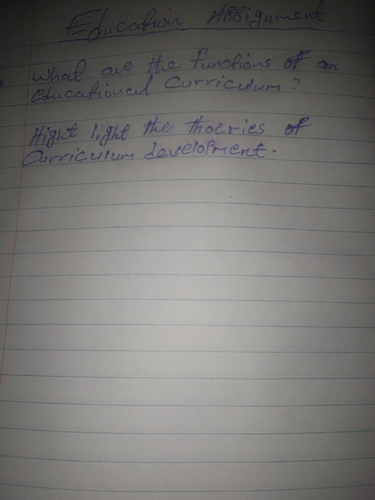 Education Assignment
What are the functions of an
educational Curriculum?
Hight light the thoeries of
Curriculum development.